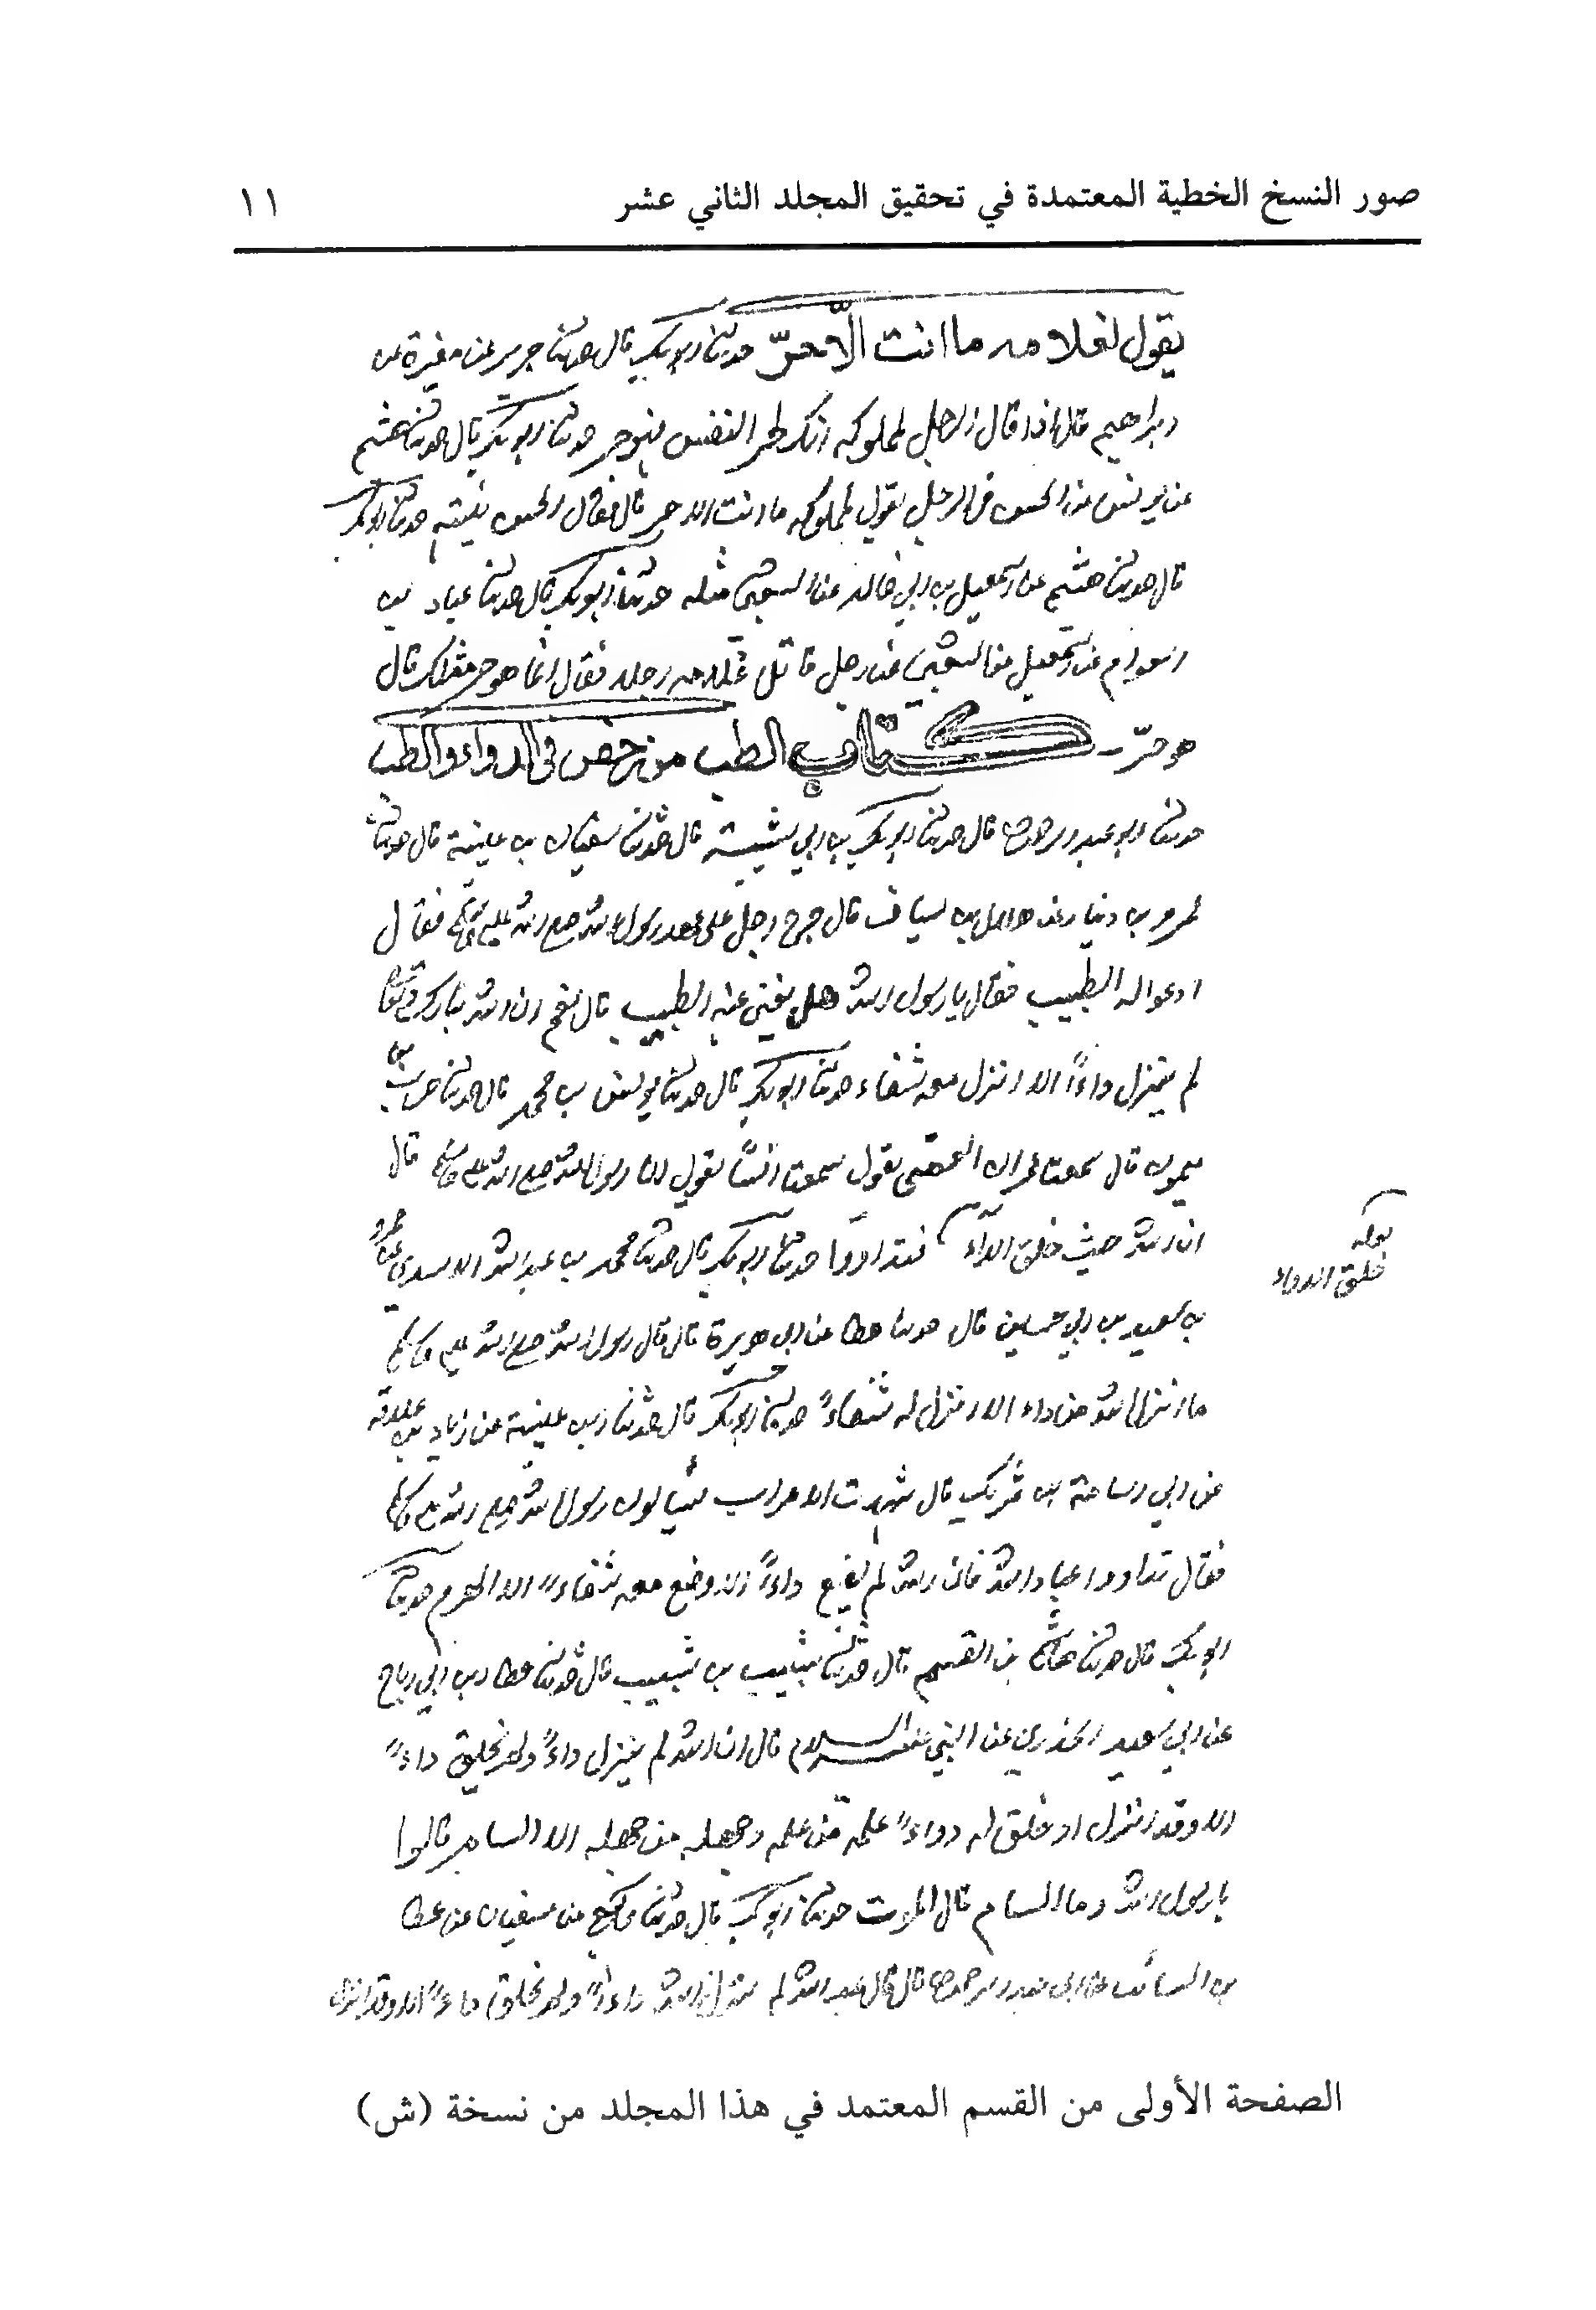 صور النسخ الخطية المعتمدة في تحقيق المجلد الثاني عشر ١١
يقول لغلامه ما انت الا حرّ حدثنا ابو بكر قال حدثنا جرير عن مغيرة عن
ابراهيم قال اذا قال الرجل لمملوكه انك لحر النفس فهو حر حدثنا ابو بكر قال حدثنا هشيم
عن يونس عن الحسن في الرجل يقول لمملوكه ما انت الا حر قال فقال الحسن نيته حدثنا ابو بكر
قال حدثنا هشيم عن اسمعيل بن ابي خالد عن الشعبي مثله حدثنا ابو بكر قال حدثنا عباد بن
العوام عن اسمعيل عن الشعبي عن رجل قاتل غلامه رجلا فقال انما هو حر مثلك قال
هو حرّ كتاب الطب من رخص في الدواء والطب
حدثنا ابو عبد الرحمن قال حدثنا ابو بكر بن ابي شيبة قال حدثنا سفيان بن عيينة قال حدثنا
عمرو بن دينار عن هلال بن يساف قال جرح رجل على عهد رسول الله صلى الله عليه وسلم فقال
ادعوا له الطبيب فقال يا رسول الله هل يغني عنه الطبيب قال نعم ان الله تبارك وتعالى
لم ينزل داءً الا انزل معه شفاء حدثنا ابو بكر قال حدثنا يونس بن محمد قال حدثنا حرب بن
ميمون قال سمعت عمران العمي يقول سمعت انسًا يقول ان رسول الله صلى الله عليه وسلم قال
ان الله حيث خلق الدآء فتداووا حدثنا ابو بكر قال حدثنا محمد بن عبد الله الاسدي عن عمرو
لعله
خلق الدواء
بن سعيد بن ابي حسين قال حدثنا عطا عن ابي هريرة قال قال رسول الله صلى الله عليه وسلم
ما انزل الله من داء الا انزل له شفاءً حدثنا ابو بكر قال حدثنا ابن عيينة عن زياد بن علاقة
عن ابي اسامة بن شريك قال شهدت الاعراب يسالون رسول الله صلى الله عليه وسلم
فقال تداووا عباد الله فان الله لم يضع داءً الا وضع معه شفاءً الا الهرم حدثنا
ابو بكر قال حدثنا هاشم بن القسم قال حدثنا شبيب بن شيبة قال حدثنا عطا بن ابي رباح
عن ابي سعيد الخذري عن النبي عليه السلام قال ان الله لم ينزل داءً ولم يخلق داءً
الا وقد انزل او خلق له دواءً علمه من علمه وجهله من جهله الا السام قالوا
يا رسول الله وما السام قال الموت حدثنا ابو بكر قال حدثنا وكيع عن سفيان عن عطا
بن السائب عن ابي عبد الرحمن قال قال عبد الله لم ينزل الله داءً ولم يخلق داءً الا وقد انزل
الصفحة الأولى من القسم المعتمد في هذا المجلد من نسخة (ش)